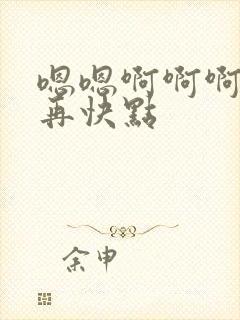 嗯嗯啊啊啊
再快點
余申